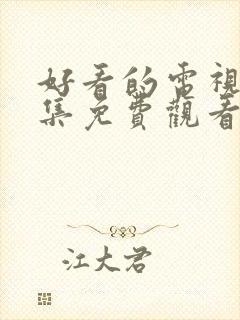 好看的電視
集免費觀看
江大君